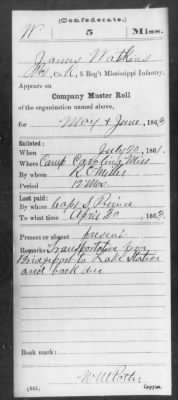 (Confederate.)
W 5 Miss.
James Watkins
Co. K, 5 Reg't Mississippi Infantry.
Appears on
Company Muster Roll
of the organization named above,
for May & June, 1863
Enlisted:
When July 20, 1861.
Where Camp Carolina Miss
By whom K.C. Miller
Period 12 Mos
Last paid:
By whom Capt S. Prince
To what time April 30, 1863.
Present or absent present
Remarks: Transportation from
Bridgeport to Lake Station
and back due
Book mark:
(642) Copyist.